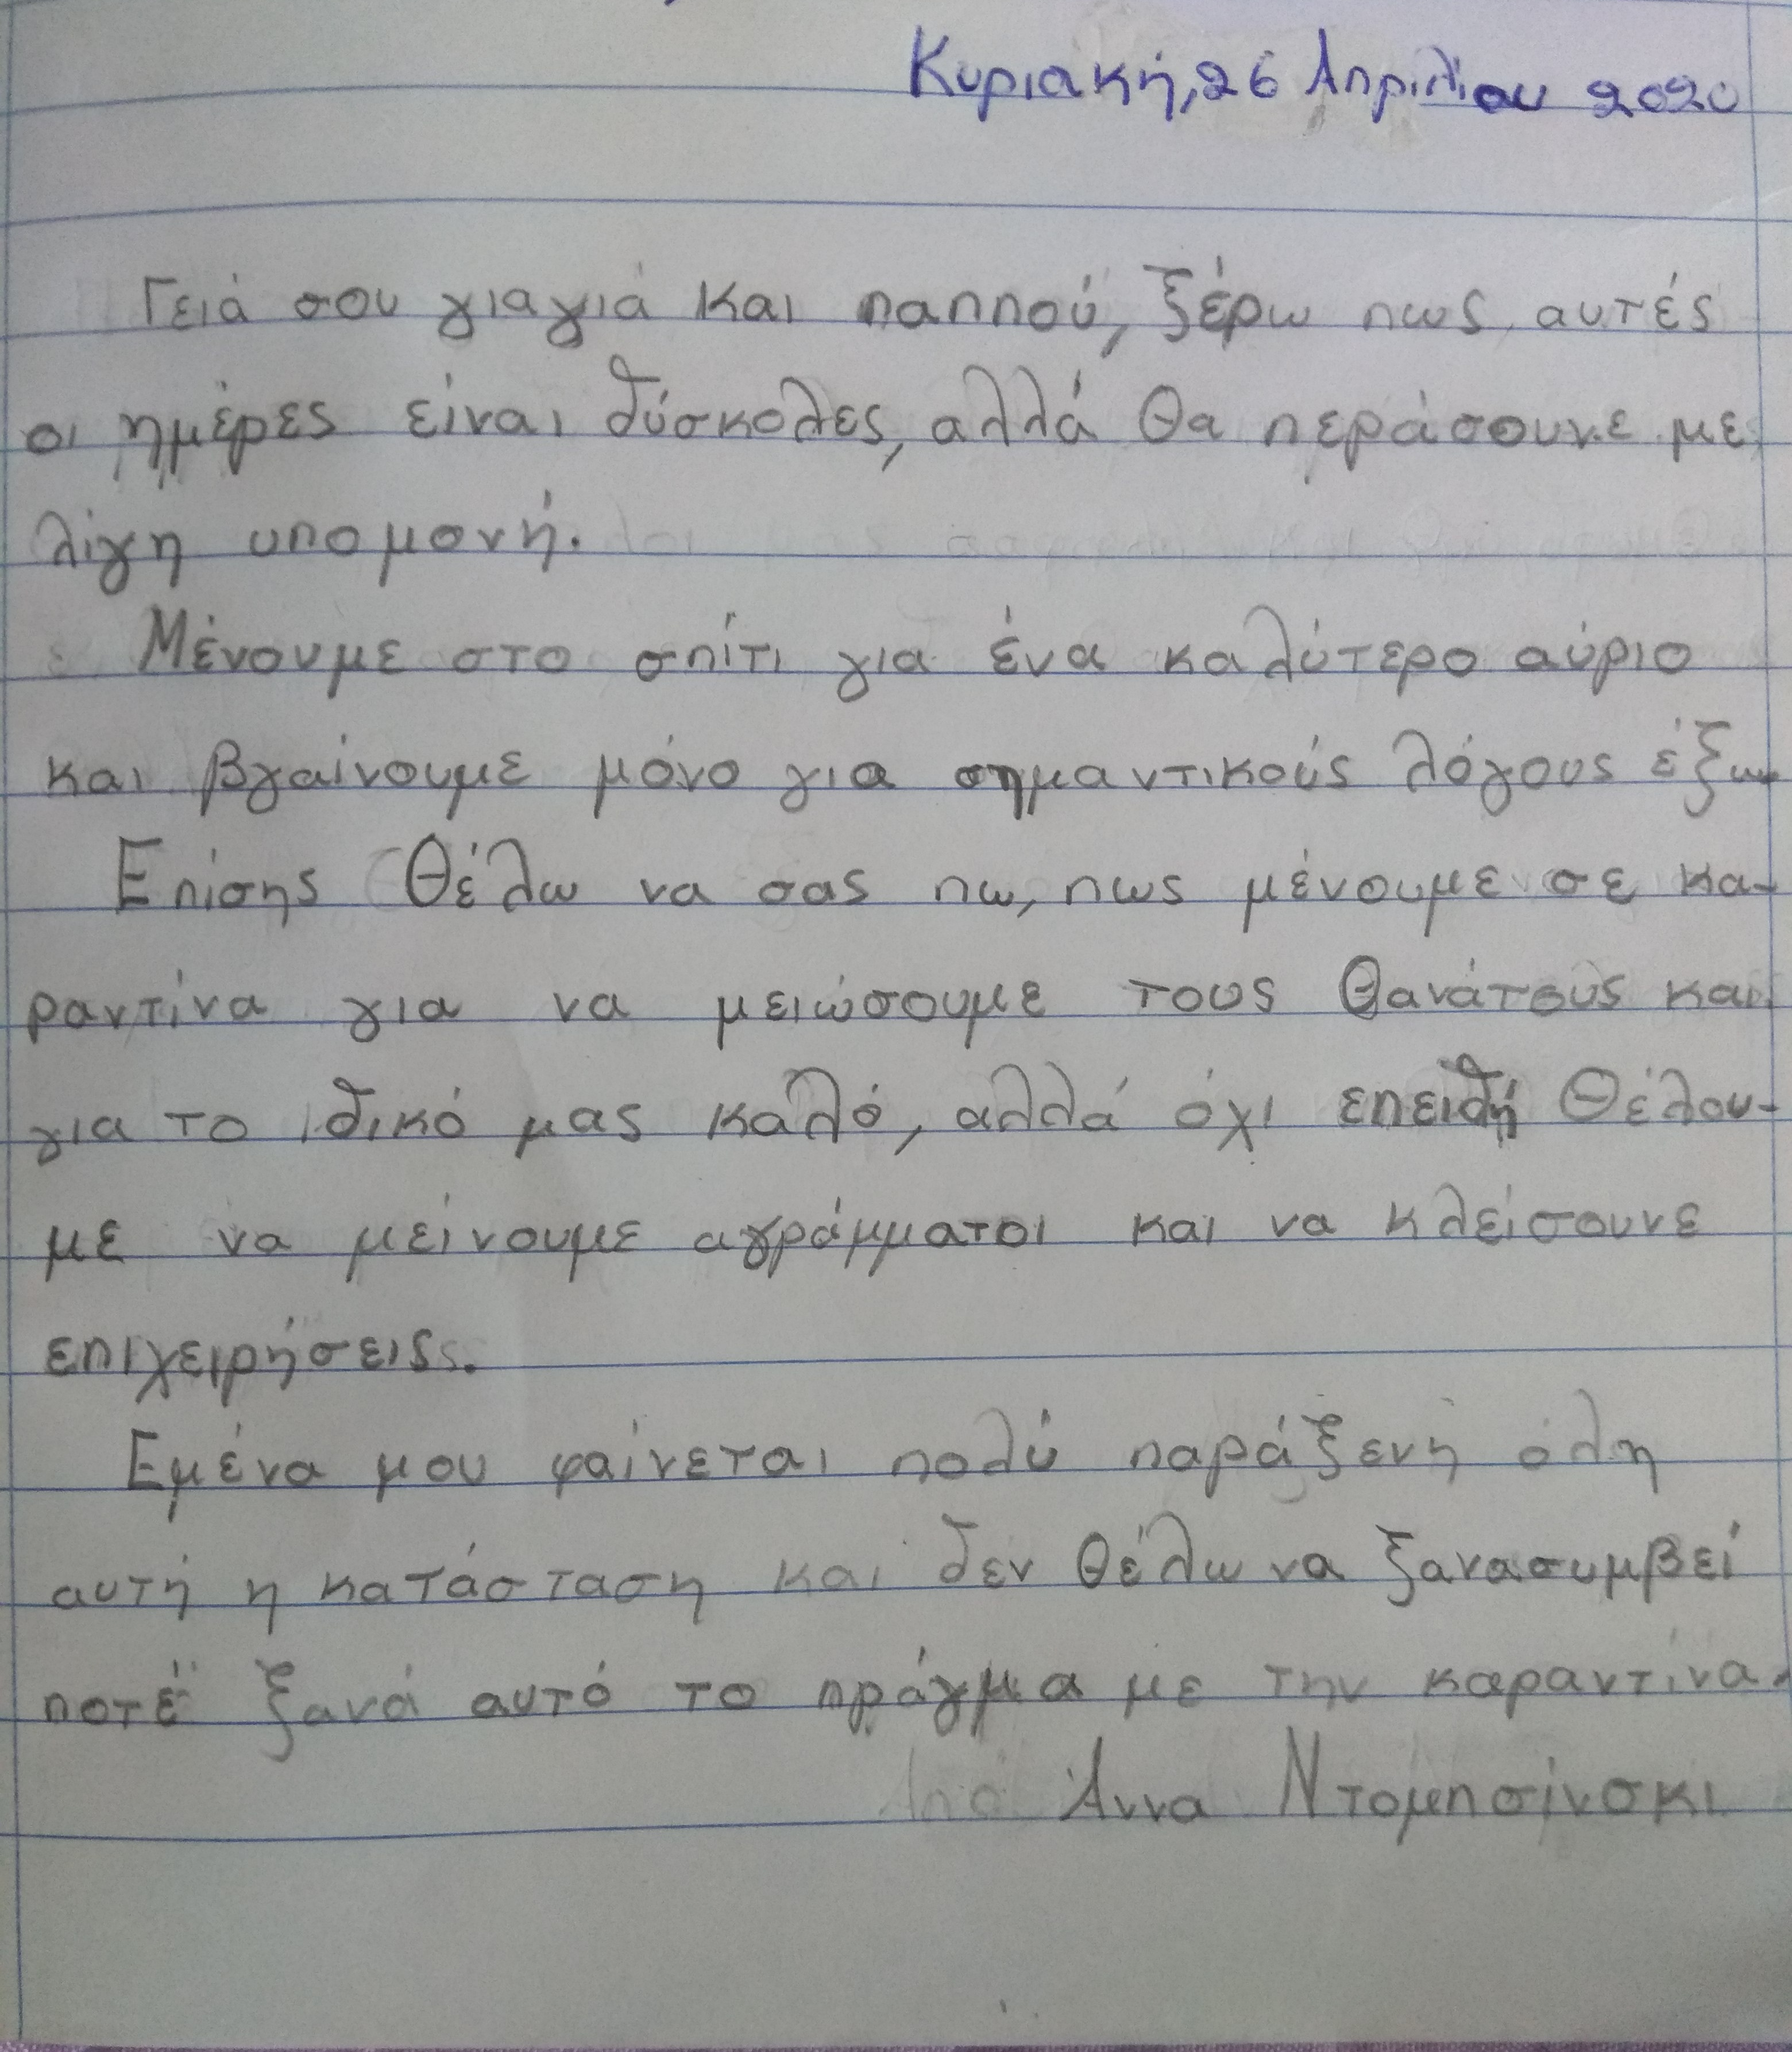 Κυριακή, 26 Απριλίου 2020
Γειά σου γιαγιά και παππού, ξέρω πως αυτές
οι ημέρες είναι δύσκολες, αλλά θα περάσουνε με
λίγη υπομονή.
Μένουμε στο σπίτι για ένα καλύτερο αύριο
και βγαίνουμε μόνο για σημαντικούς λόγους έξω.
Επίσης θέλω να σας πω, πως μένουμε σε κα-
ραντίνα για να μειώσουμε τους θανάτους και
για το δικό μας καλό, αλλά όχι επειδή θέλου-
με να μείνουμε αγράμματοι και να κλείσουνε
επιχειρήσεις.
Εμένα μου φαίνεται πολύ παράξενη όλη
αυτή η κατάσταση και δεν θέλω να ξανασυμβεί
ποτέ ξανά αυτό το πράγμα με την καραντίνα.
Άννα Ντομπσίνσκι